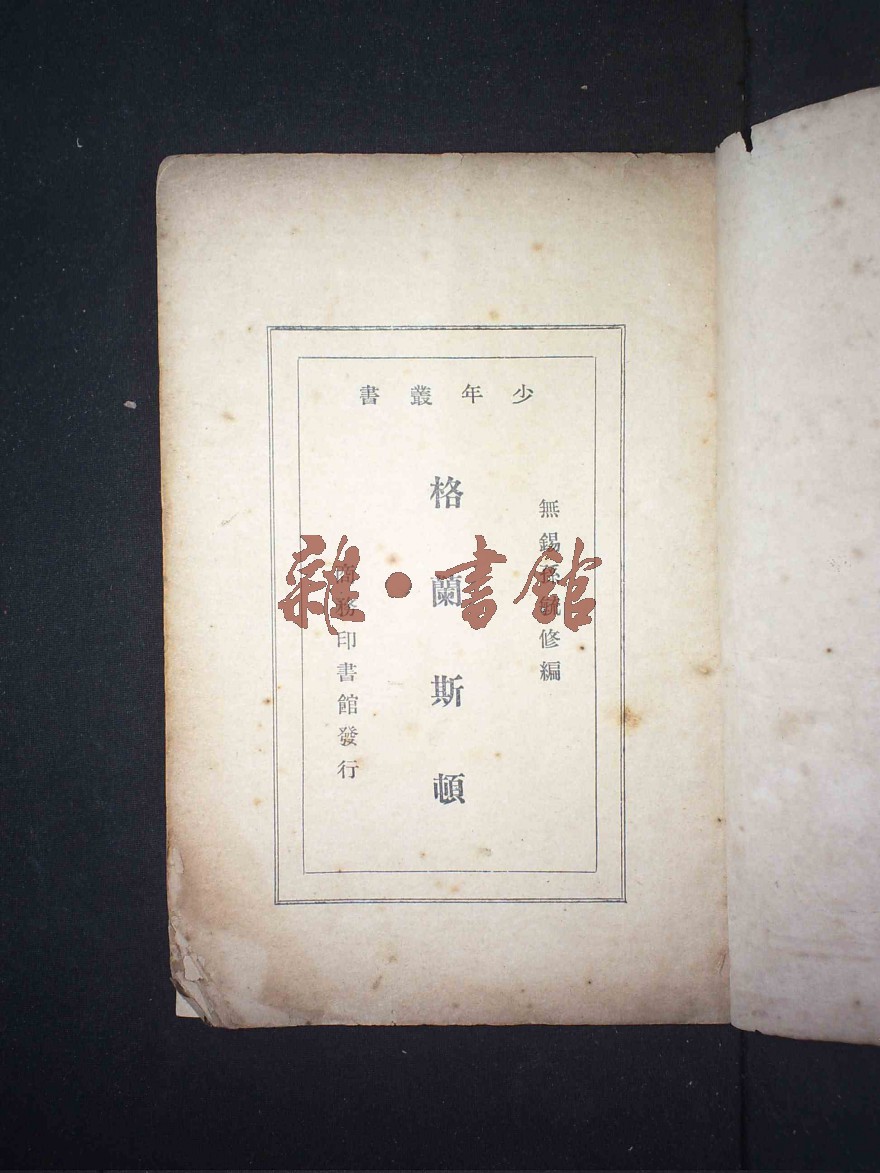 少年叢書
無錫孫毓修編
格蘭斯頓
商務印書館發行
雜·書館